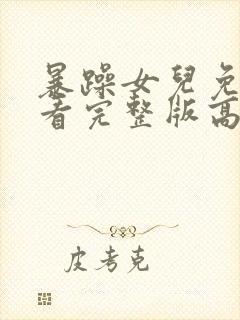 暴躁女兒免
看完整版高
皮考克